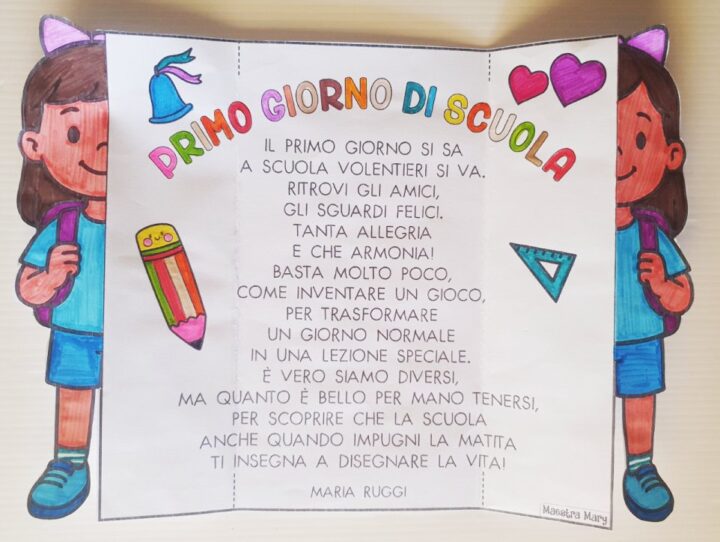 PRIMO GIORNO DI SCUOLA
IL PRIMO GIORNO SI SA
A SCUOLA VOLENTIERI SI VA.
RITROVI GLI AMICI,
GLI SGUARDI FELICI.
TANTA ALLEGRIA
E CHE ARMONIA!
BASTA MOLTO POCO,
COME INVENTARE UN GIOCO,
PER TRASFORMARE
UN GIORNO NORMALE
IN UNA LEZIONE SPECIALE.
È VERO SIAMO DIVERSI,
MA QUANTO È BELLO PER MANO TENERSI,
PER SCOPRIRE CHE LA SCUOLA
ANCHE QUANDO IMPUGNI LA MATITA
TI INSEGNA A DISEGNARE LA VITA!
MARIA RUGGI
Maestra Mary